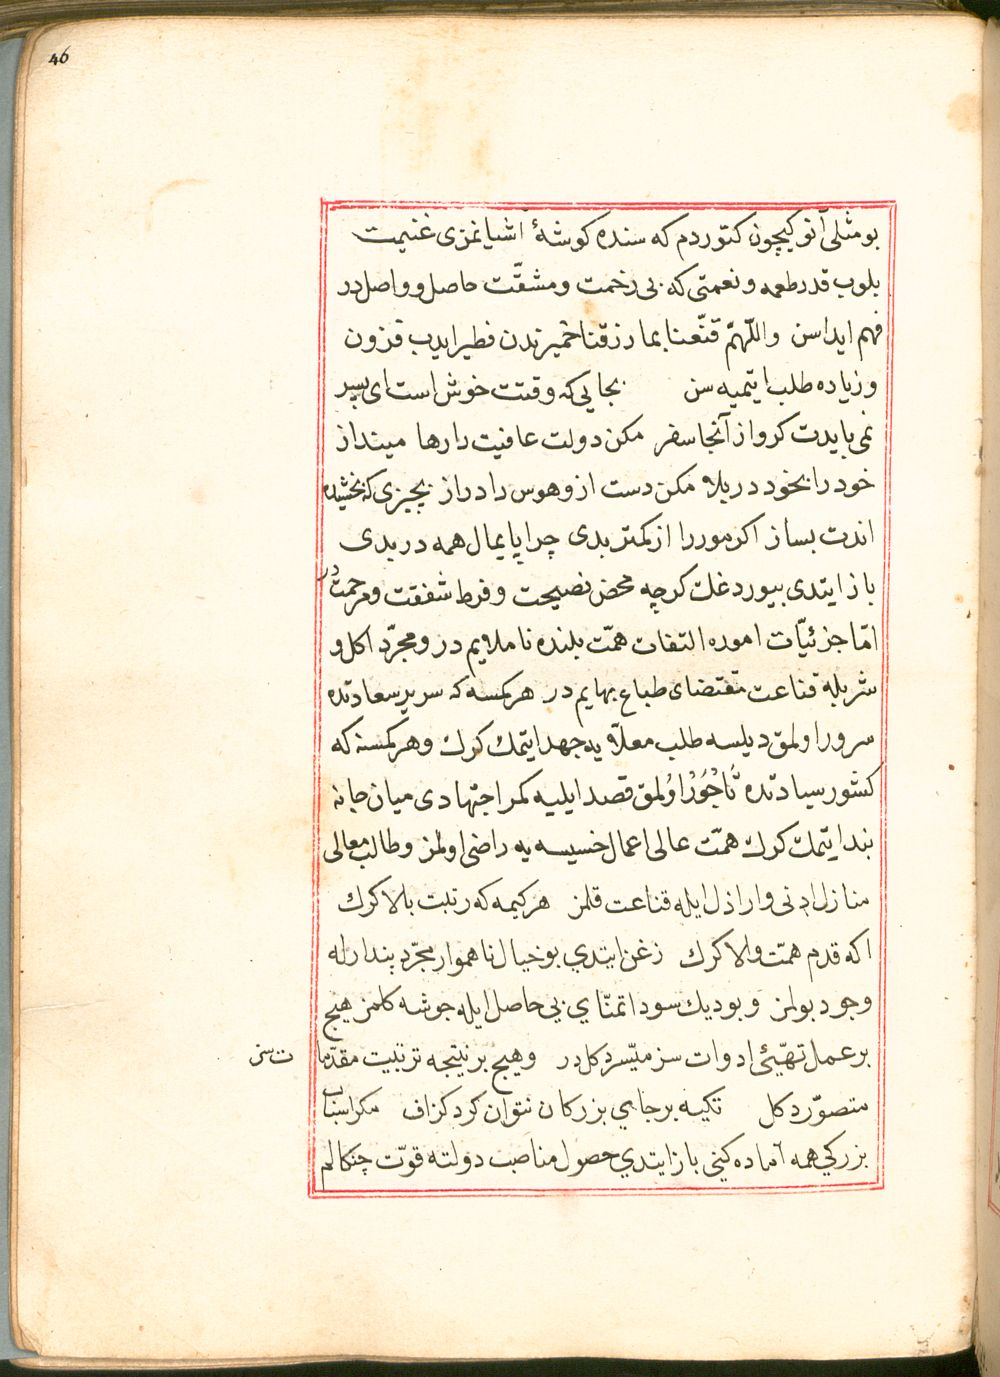 46
بو مثلی آنو کیچون کتوردم که سنده کوشهٔ اشیانمزی غنیمت
بلوب قدر طعمه و نعمتی که بی زخمت و مشقّت حاصل و واصل در
فهم ایداسن واللّهمّ قنّعنا بما رزقتنا خمیرندن فطیر ایدب فزون
و زیاده طلب ایتمیه سن بجایی که وقتت خوش است ای پسر
نمی بایدت کرد از آنجا سفر مکن دولت عافیت را رها مینداز
خود را بخود در بلا مکن دست از و هوس را دراز بچیزی که بخشیده
اندت بساز اکر مور را از کمتر بدی چرا پایمال همه در بدی
باز ایتدی بیوردغک کرچه محض نصیحت و فرط شفقت و مرحمت در
امّا جزئیّات اموره التفات همّت بلنده ناملایم در و مجرّد اکل و
شربله قناعت مقتضای طباع بهایم در هر کمسه که سریر سعادتده
سرور اولمق دیلسه طلب معلّا یه جهد ایتمك کرك و هر کمسنه که
کشور سیادتده تاجور اولمق قصد ایلیه کمر اجتهادی میان جانه
بند ایتمك کرك همّت عالی اعمال خسیسه یه راضی اولمز و طالب معالی
منازل ادنی و اراذل ایله قناعت قلمز هر کیمه که رتبت بالا کرك
اکه قدم همّت والا کرك زغن ایتدی بو خیال ناهموار مجرّد پندارله
وجود بولمز و بو دیك سودا تمنّای بی حاصل ایله جوشه کلمز هیچ
بر عمل تهیّئ ادوات سز میسّر دکلدر و هیچ بر نتیجه ترتیب مقدّما
ت سز
متصوّر دکل تکیه بر جای بزرکان نتوان کرد کزاف مکر اسباب
بزرکی همه آماده کنی باز ایتدی حصول مناصب دولته قوّت چنکالم